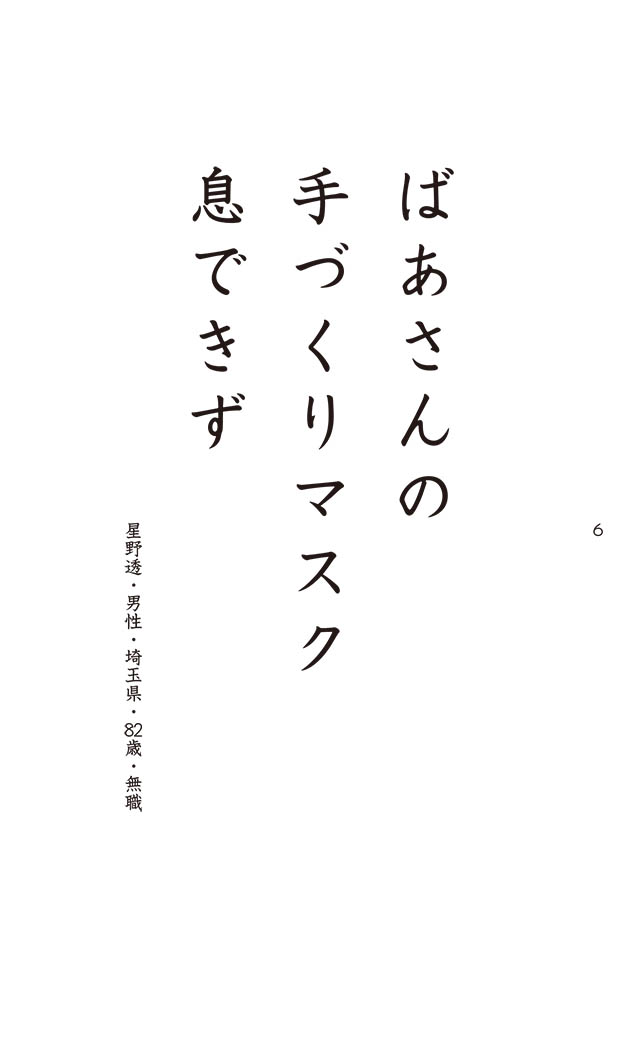 ばあさんの
手づくりマスク
息できず
星野透・男性・埼玉県・82歳・無職
6